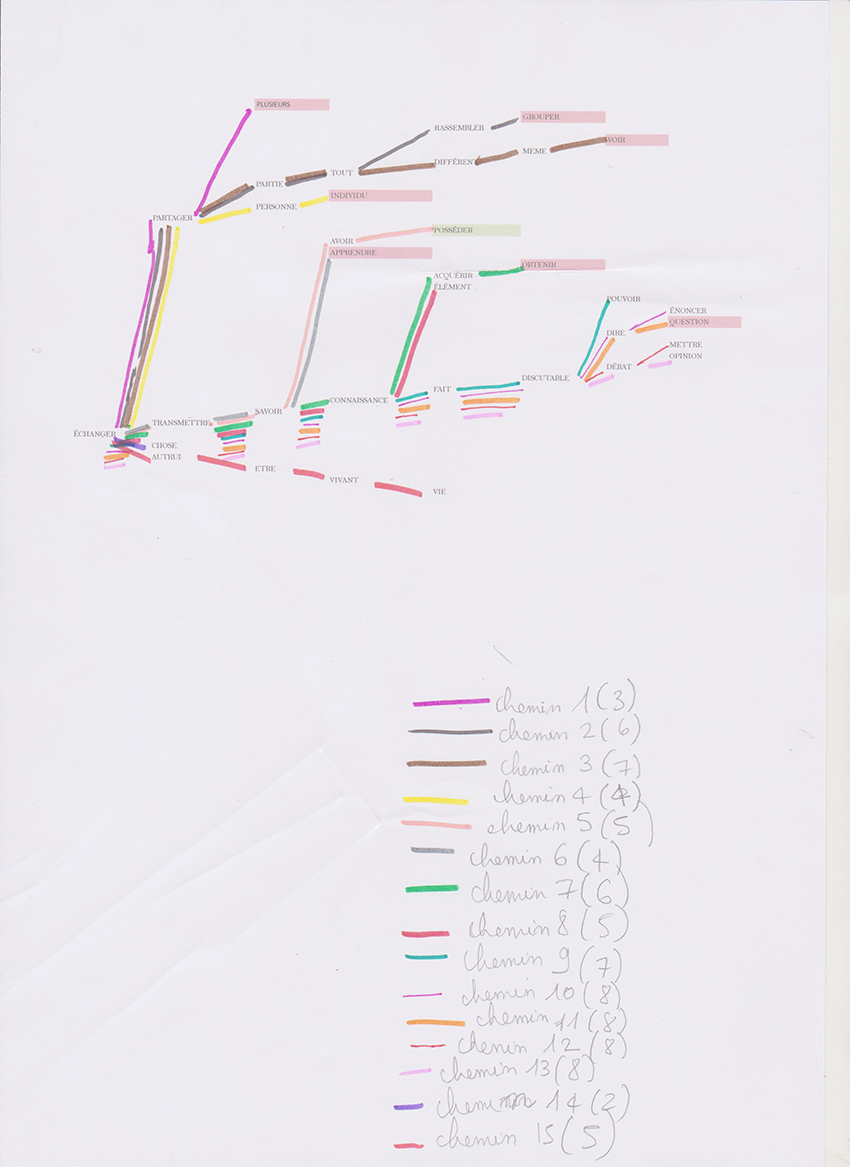 PLUSIEURS
RASSEMBLER
GROUPER
DIFFÉRENT
MEME
VOIR
PARTIE
TOUT
INDIVIDU
PERSONNE
PARTAGER
AVOIR
POSSÉDER
APPRENDRE
ACQUÉRIR
OBTENIR
ÉLÉMENT
POUVOIR
ÉNONCER
DIRE
QUESTION
METTRE
OPINION
DÉBAT
DISCUTABLE
FAIT
CONNAISSANCE
SAVOIR
TRANSMETTRE
ÉCHANGER
CHOSE
AUTRUI
ETRE
VIVANT
VIE
chemin 1 (3)
chemin 2 (6)
chemin 3 (7)
chemin 4 (4)
chemin 5 (5)
chemin 6 (4)
chemin 7 (6)
chemin 8 (5)
chemin 9 (7)
chemin 10 (8)
chemin 11 (8)
chemin 12 (8)
chemin 13 (8)
chemin 14 (2)
chemin 15 (5)